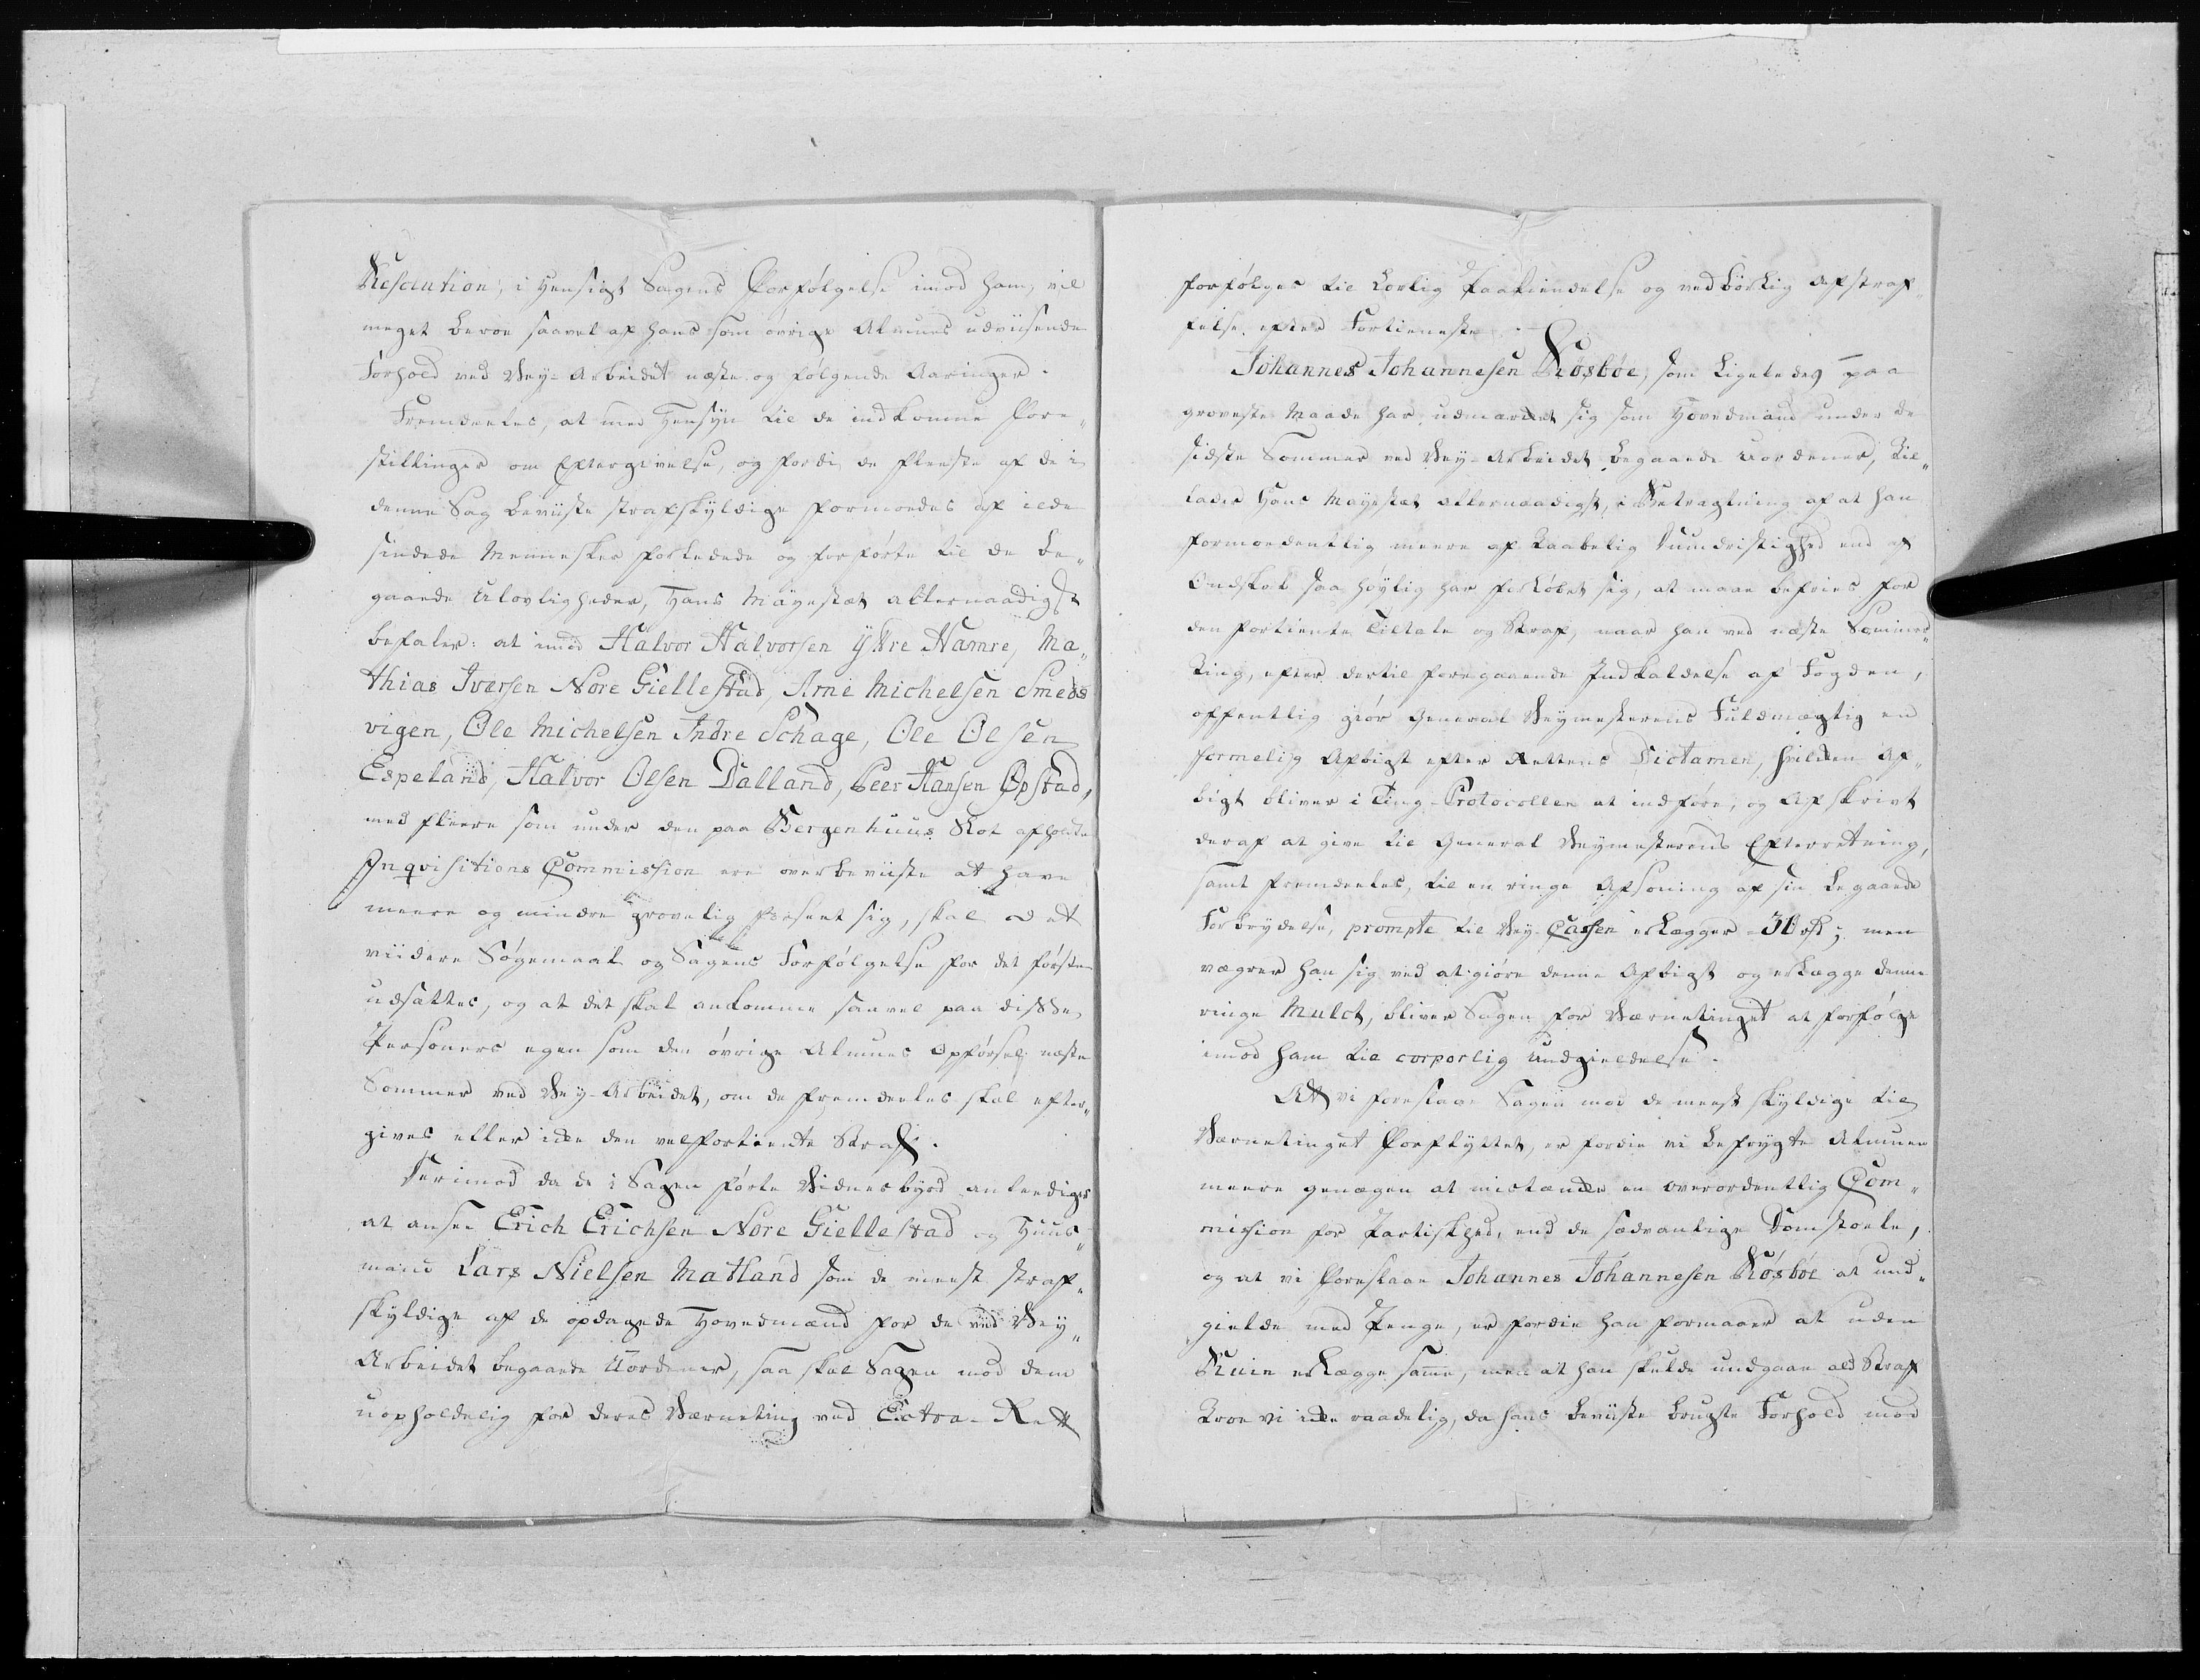 Resolution, i Hensigt Sagens Forfølgelse imod ham, vil
meget beroe saavel af hans som øvrige Almues udviisende
Forhold ved Vey-Arbeidet næste og følgende Aaringer.
Fremdeeles, at med Hensyn til de indkomne Fore„
stillinger om Eftergivelse, og fordi de fleeste af de i
denne Sag beviiste strafskyldige formoedes af ilde
sindede Mennesker forledede og forførte til de be„
gaaende Ulovligheder, Hans Mayestæt allernaadigst
befaler: at imod Halvor Halvorsen Ytre Hamre, Ma„
thias Iversen Nore Giellestad, Arne Michelsen Smeds
vigen, Ole Michelsen Indre Schage, Ole Olsen
Espeland, Halvor Olsen Dalland, Peer Hansen Opstad,
med fleere som under den paa Bergenhuus Slot afholdte
Inqvisitions Commission ere overbeviiste at have
meere og mindre grovelig forseet sig, skal ald
viidere Søgemaal og Sagens Forfølgelse for det første
udsættes, og at det skal ankomme saavel paa disse
Personers egen som den øvrige Almues Opførsel næste
Sommer ved Vey-Arbeidet, om de fremdeeles skal efter„
gives eller icke den velfortiente Straf.
Derimod da de i Sagen førte Vidnesbyrd anleediges
at ansee Erich Erichsen Nore Giellestad og Huus„
mand Lars Nielsen Matland som de meest straf„
skyldige af de opdagede Hovedmænd for de ved Vey„
Arbeidet begaaede Uordener, saa skal Sagen mod dem
uopholdelig for deres Værneting ved Extra-Rett
forfølges til Lovlig Paakiendelse og vedbørlig Afstraf„
felse efter Fortieneste.
Johannes Johannesen Røsbøe, som ligeledes paa
groveste Maade har udmærcket sig som Hovedmand under de
sidste Sommer ved Vey-Arbeidet begaaede Uordener, til„
lader Hans Mayestæt allernaadigst, i Betragtning af at han
formoedentlig meere af taabelig Dumdristighed end af
Ondskab saa høylig har forløbet sig, at maae befries for
den fortiente Tiltale og Straf, naar han ved næste Sommer„
Ting, efter dertil foregaaende Indkaldelse af Fogden,
offentlig giør General Veymesterens Fuldmægtig en
formelig Afbigt efter Rettens Dictamen, hvilken Af„
bigt bliver i Ting-Protocollen at indføre, og Afskrivt
deraf at give til General Veymesterens Efterretning,
samt fremdeeles, til en ringe Afsoning af sin begaaede
Forbrydelse, prompte til Vey-Cassen erlægger 30 rd; men
vægrer han sig ved at giøre denne Afbigt og erlægge denne
ringe Mulct, bliver Sagen for Værnetinget at forfølge
imod ham til corporlig Undgieldelse.
At vi foreslaae Sagen mod de meest skyldige til
Værnetinget forflyttet, er fordie vi befrygte Almuen
meere genægen at mistæncke en overordentlig Com„
mission for Partiskhed, end de sædvanlige Domstoele,
og at vi foreslaae Johannes Johannesen Røsbøe at und„
gielde med Penge, er fordie han formaaer at uden
Ruin erlægge samme, men at han skulde undgaae ald Straf
troe vi icke raadelig, da hans beviiste brugte Forhold mod